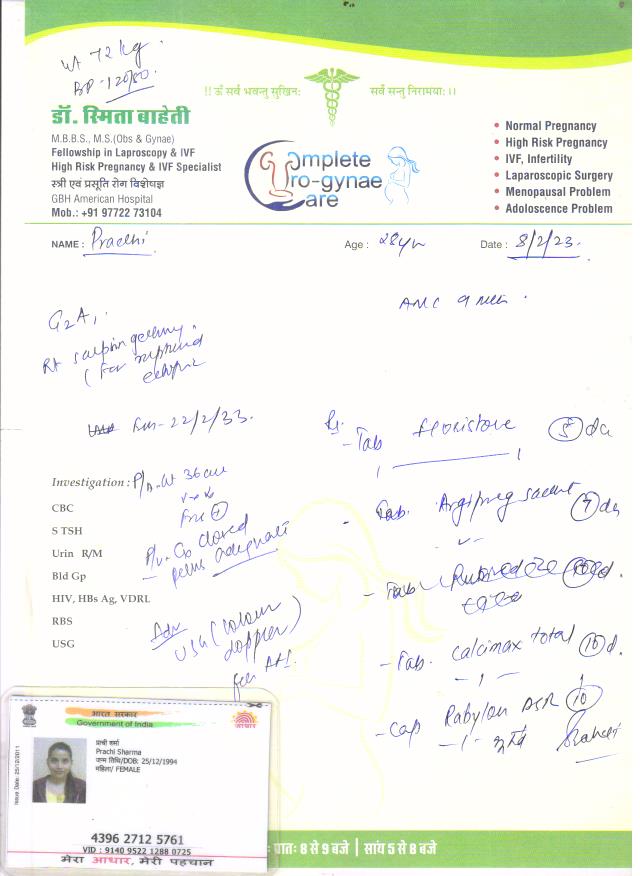 Wt 72 kg.
BP - 120/80.
!! ॐ सर्व भवन्तु सुखिन: सर्व सन्तु निरामया: ।।
डॉ. स्मिता बाहेती
M.B.B.S., M.S.(Obs & Gynae)
Fellowship in Laproscopy & IVF
High Risk Pregnancy & IVF Specialist
स्त्री एवं प्रसूति रोग विशेषज्ञ
GBH American Hospital
Mob.: +91 97722 73104
Complete
Uro-gynae
Care
• Normal Pregnancy
• High Risk Pregnancy
• IVF, Infertility
• Laparoscopic Surgery
• Menopausal Problem
• Adoloscence Problem
NAME : Prachi
Age : 28yr
Date : 8/2/23.
G2A1
Rt
(For ruptured
ectopic
22/2/23.
Investigation :
CBC
S TSH
Urin R/M
Bld Gp
HIV, HBs Ag, VDRL
RBS
USG
P/A - Ut 36
P/v - closed
pelvis adequate
Adv
USG (colour
doppler)
- Tab 5 d
- Tab. Argipreg sachet 7 d
- Tab
- Tab. Calcimax total 10 d.
- 1 -
- Cap Rabylon DSR 10
- 1 -
भारत सरकार
Government of India
आधार
Issue Date: 25/12/2011
प्राची शर्मा
Prachi Sharma
जन्म तिथि/DOB: 25/12/1994
महिला/ FEMALE
4396 2712 5761
VID : 9140 9522 1288 0725
मेरा आधार, मेरी पहचान
प्रातः 8 से 9 बजे | सांय 5 से 8 बजे